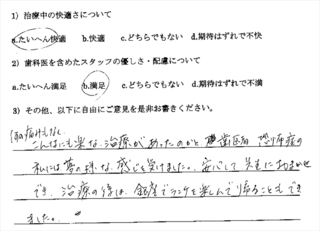 1) 治療中の快適さについて
a.たいへん快適 b.快適 c.どちらでもない d.期待はずれで不快
2) 歯科医を含めたスタッフの優しさ・配慮について
a.たいへん満足 b.満足 c.どちらでもない d.期待はずれで不満
3) その他、以下に自由にご意見を是非お書きください。
何の痛みもなく、
こんなにも楽な治療があったのかと 歯医者 恐怖症の
私には夢の様な感じを受けました。安心して先生におまかせ
でき、治療の後は、銀座でランチを楽しんで帰ることもでき
ました。